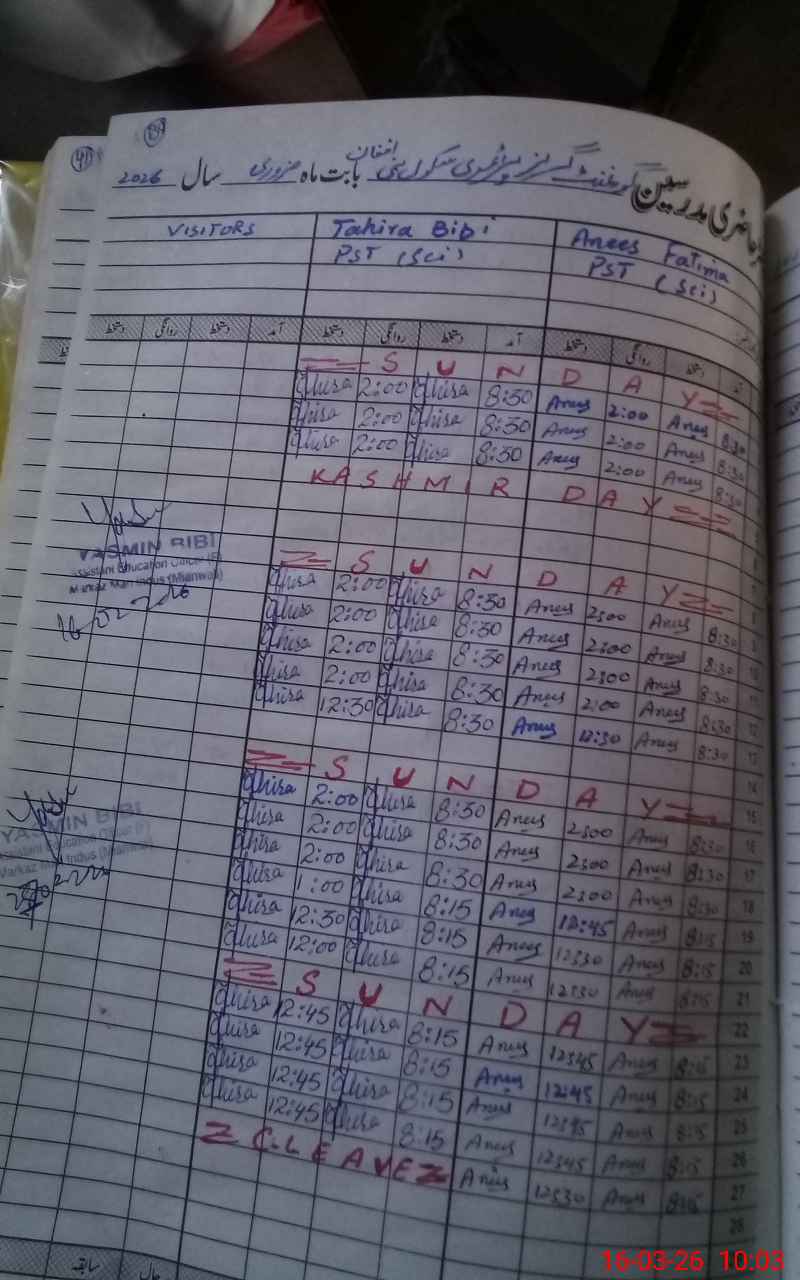 رجسٹر حاضری مدرسین گورنمنٹ گرلز پرائمری سکول پنی افغان بابت ماہ فروری سال 2026
VISITORS Tahira Bibi Anees Fatima
PST (Sci) PST (Sci)
آمد دستخط روانگی دستخط آمد دستخط روانگی دستخط آمد دستخط روانگی دستخط
S U N D A Y
8:30 Anees 2:00 Anees 8:30 Tahira 2:00 Tahira
8:30 Anees 2:00 Anees 8:30 Tahira 2:00 Tahira
8:30 Anees 2:00 Anees 8:30 Tahira 2:00 Tahira
KASHMIR DAY
S U N D A Y
8:30 Anees 2:00 Anees 8:30 Tahira 2:00 Tahira
8:30 Anees 2:00 Anees 8:30 Tahira 2:00 Tahira
8:30 Anees 2:00 Anees 8:30 Tahira 2:00 Tahira
8:30 Anees 2:00 Anees 8:30 Tahira 2:00 Tahira
8:30 Anees 12:30 Anees 8:30 Tahira 12:30 Tahira
S U N D A Y
8:30 Anees 2:00 Anees 8:30 Tahira 2:00 Tahira
8:30 Anees 2:00 Anees 8:30 Tahira 2:00 Tahira
8:30 Anees 2:00 Anees 8:30 Tahira 2:00 Tahira
8:15 Anees 12:45 Anees 8:15 Tahira 1:00 Tahira
8:15 Anees 12:30 Anees 8:15 Tahira 12:30 Tahira
8:15 Anees 12:30 Anees 8:15 Tahira 12:00 Tahira
S U N D A Y
8:15 Anees 12:45 Anees 8:15 Tahira 12:45 Tahira
8:15 Anees 12:45 Anees 8:15 Tahira 12:45 Tahira
8:15 Anees 12:45 Anees 8:15 Tahira 12:45 Tahira
8:15 Anees 12:45 Anees 8:15 Tahira 12:45 Tahira
8:15 Anees 12:30 Anees C.LEAVE
YASMIN BIBI
Assistant Education Officer (F)
Markaz Mari Indus (Mianwali)
16-02-2026
YASMIN BIBI
Assistant Education Officer (F)
Markaz Mari Indus (Mianwali)
16-03-26 10:03